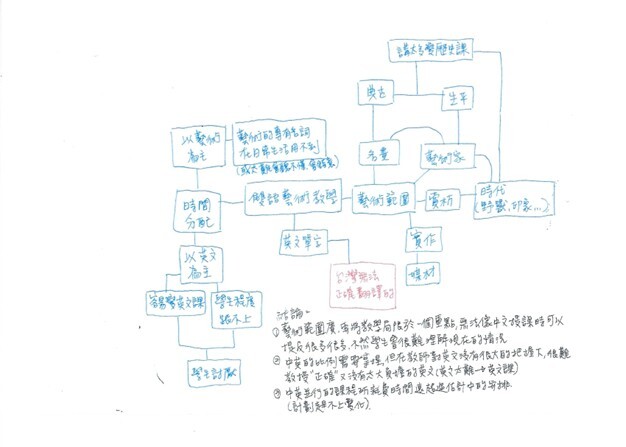 講太多變歷史課
典故
生平
以藝術
為主
藝術的專有名詞
在日常生活用不到
名畫
藝術家
時間
分配
雙語藝術教學
藝術範圍
賞析
時代
(野獸、印象...)
以英文
為主
英文單字
實作
台灣無法
正確翻譯的
媒材
容易變英文課
學生程度
跟不上
學生討厭
討論~
① 藝術範圍廣,有時教學侷限於一個重點,無法像中文授課時可以
提及很多很多,不然學生會很難理解現在的情況
② 中英的比例需要拿捏,但在教師對英文沒有很大的把握下,很難
教授"正確"又沒有太大負擔的英文(英文力難→英文課)
③ 中英並行的課程所耗費時間遠超過估計中的安排
(計劃趕不上變化)